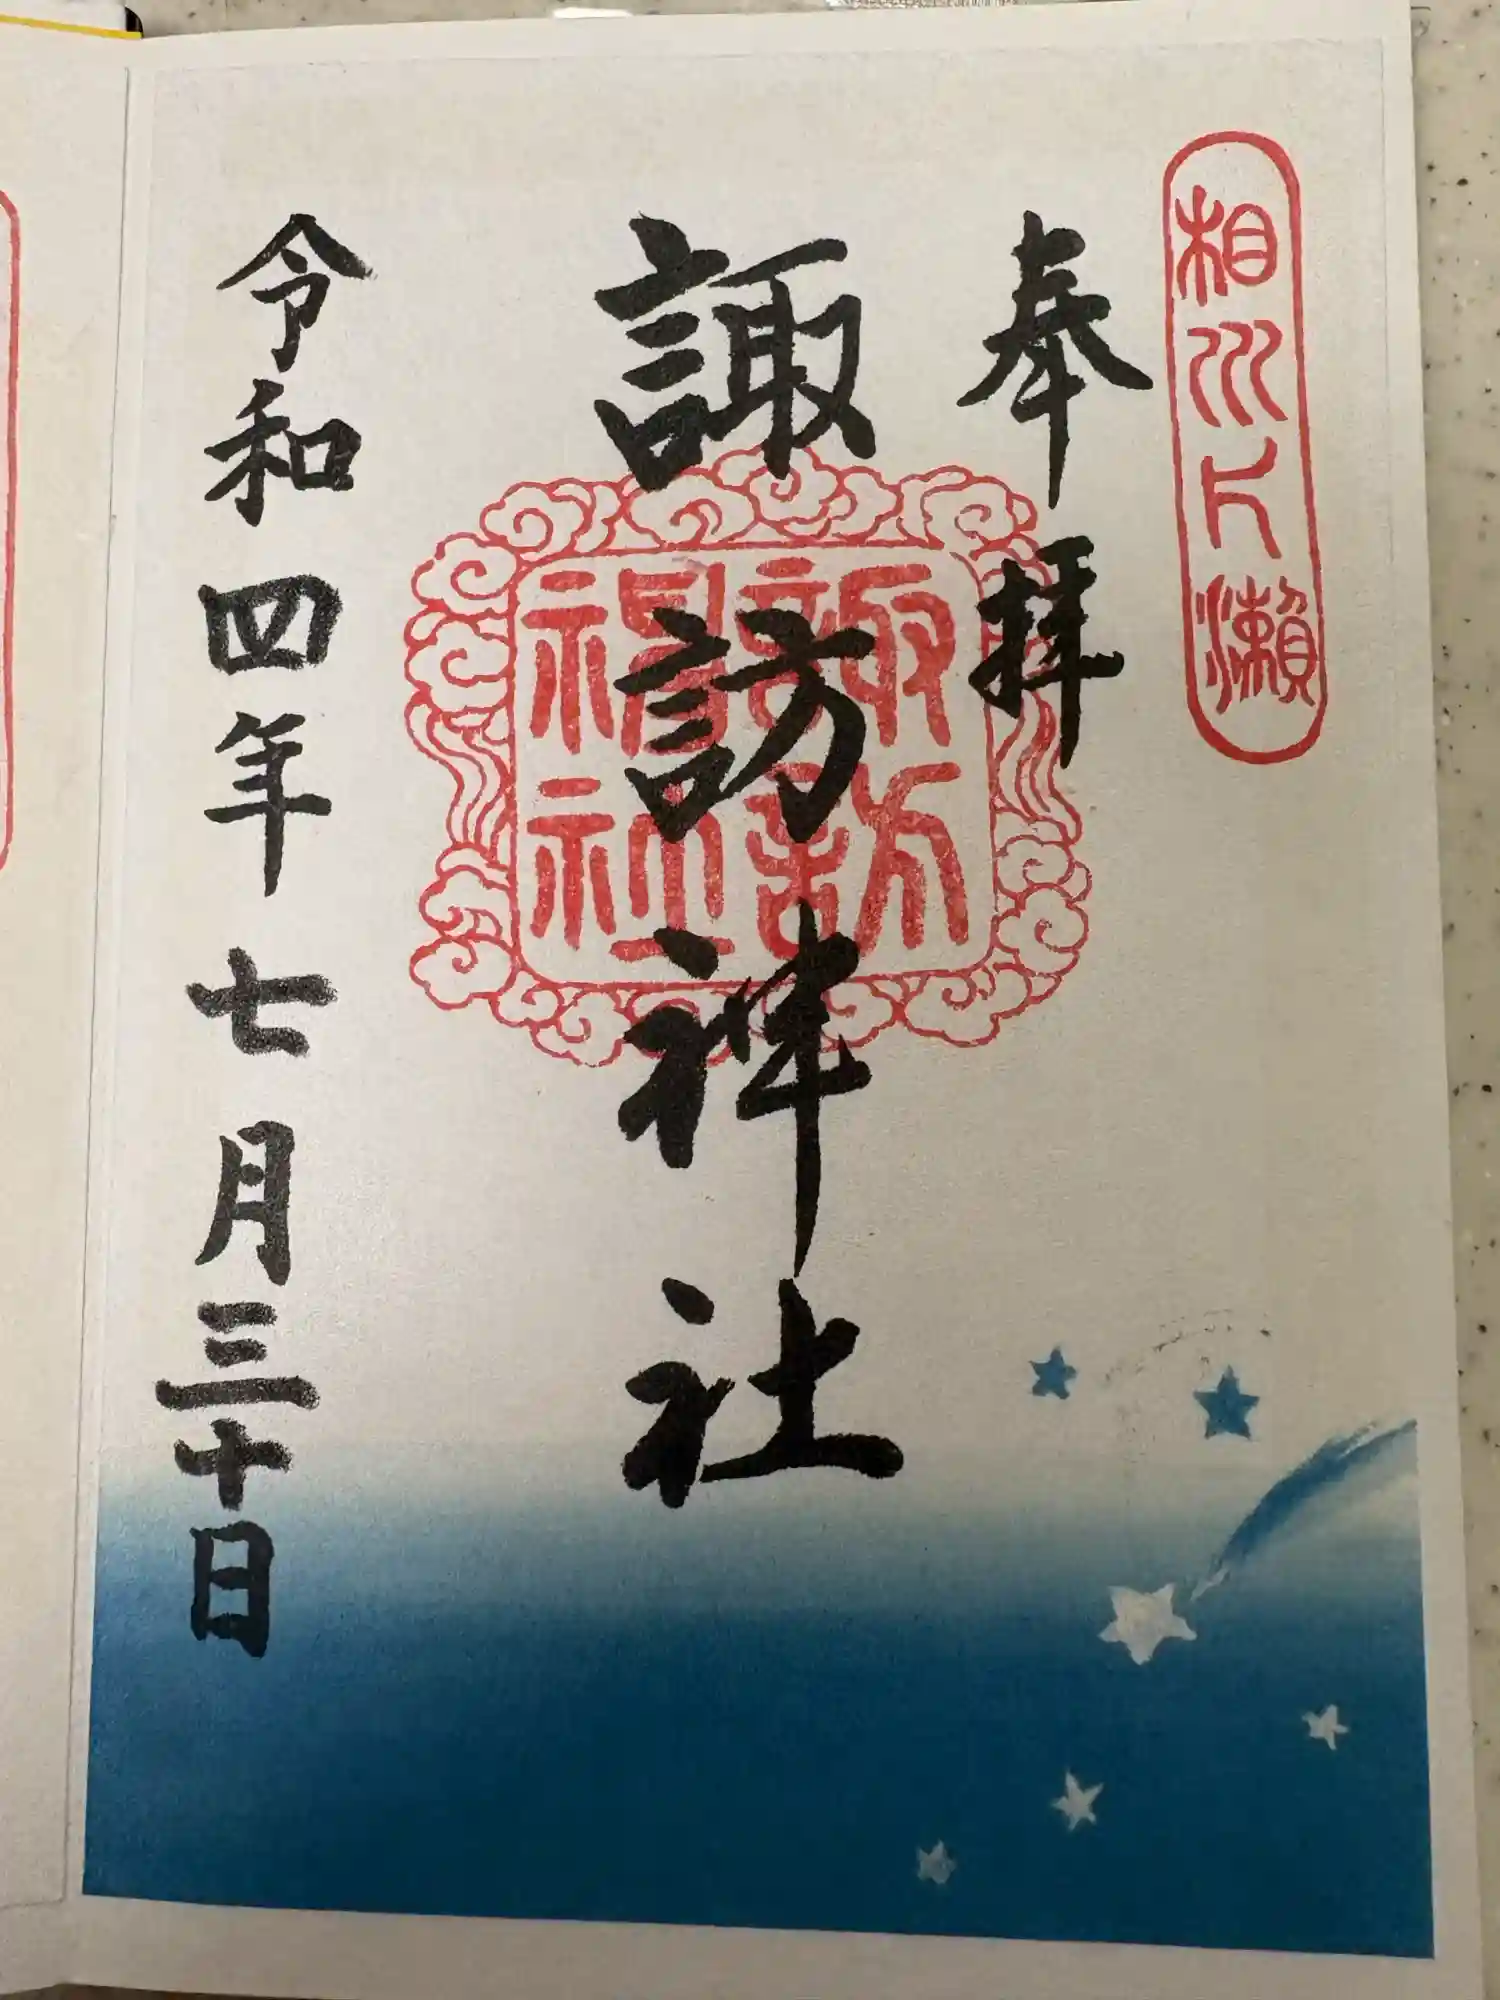 相州片瀬
奉拝
諏訪神社
諏訪
神社
令和四年七月三十日